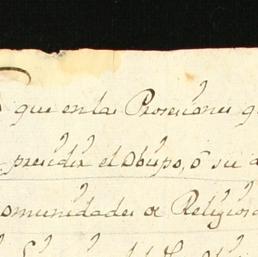 que en las Prosesiones
presidir el Obispo, ó su
comunidades de Religios